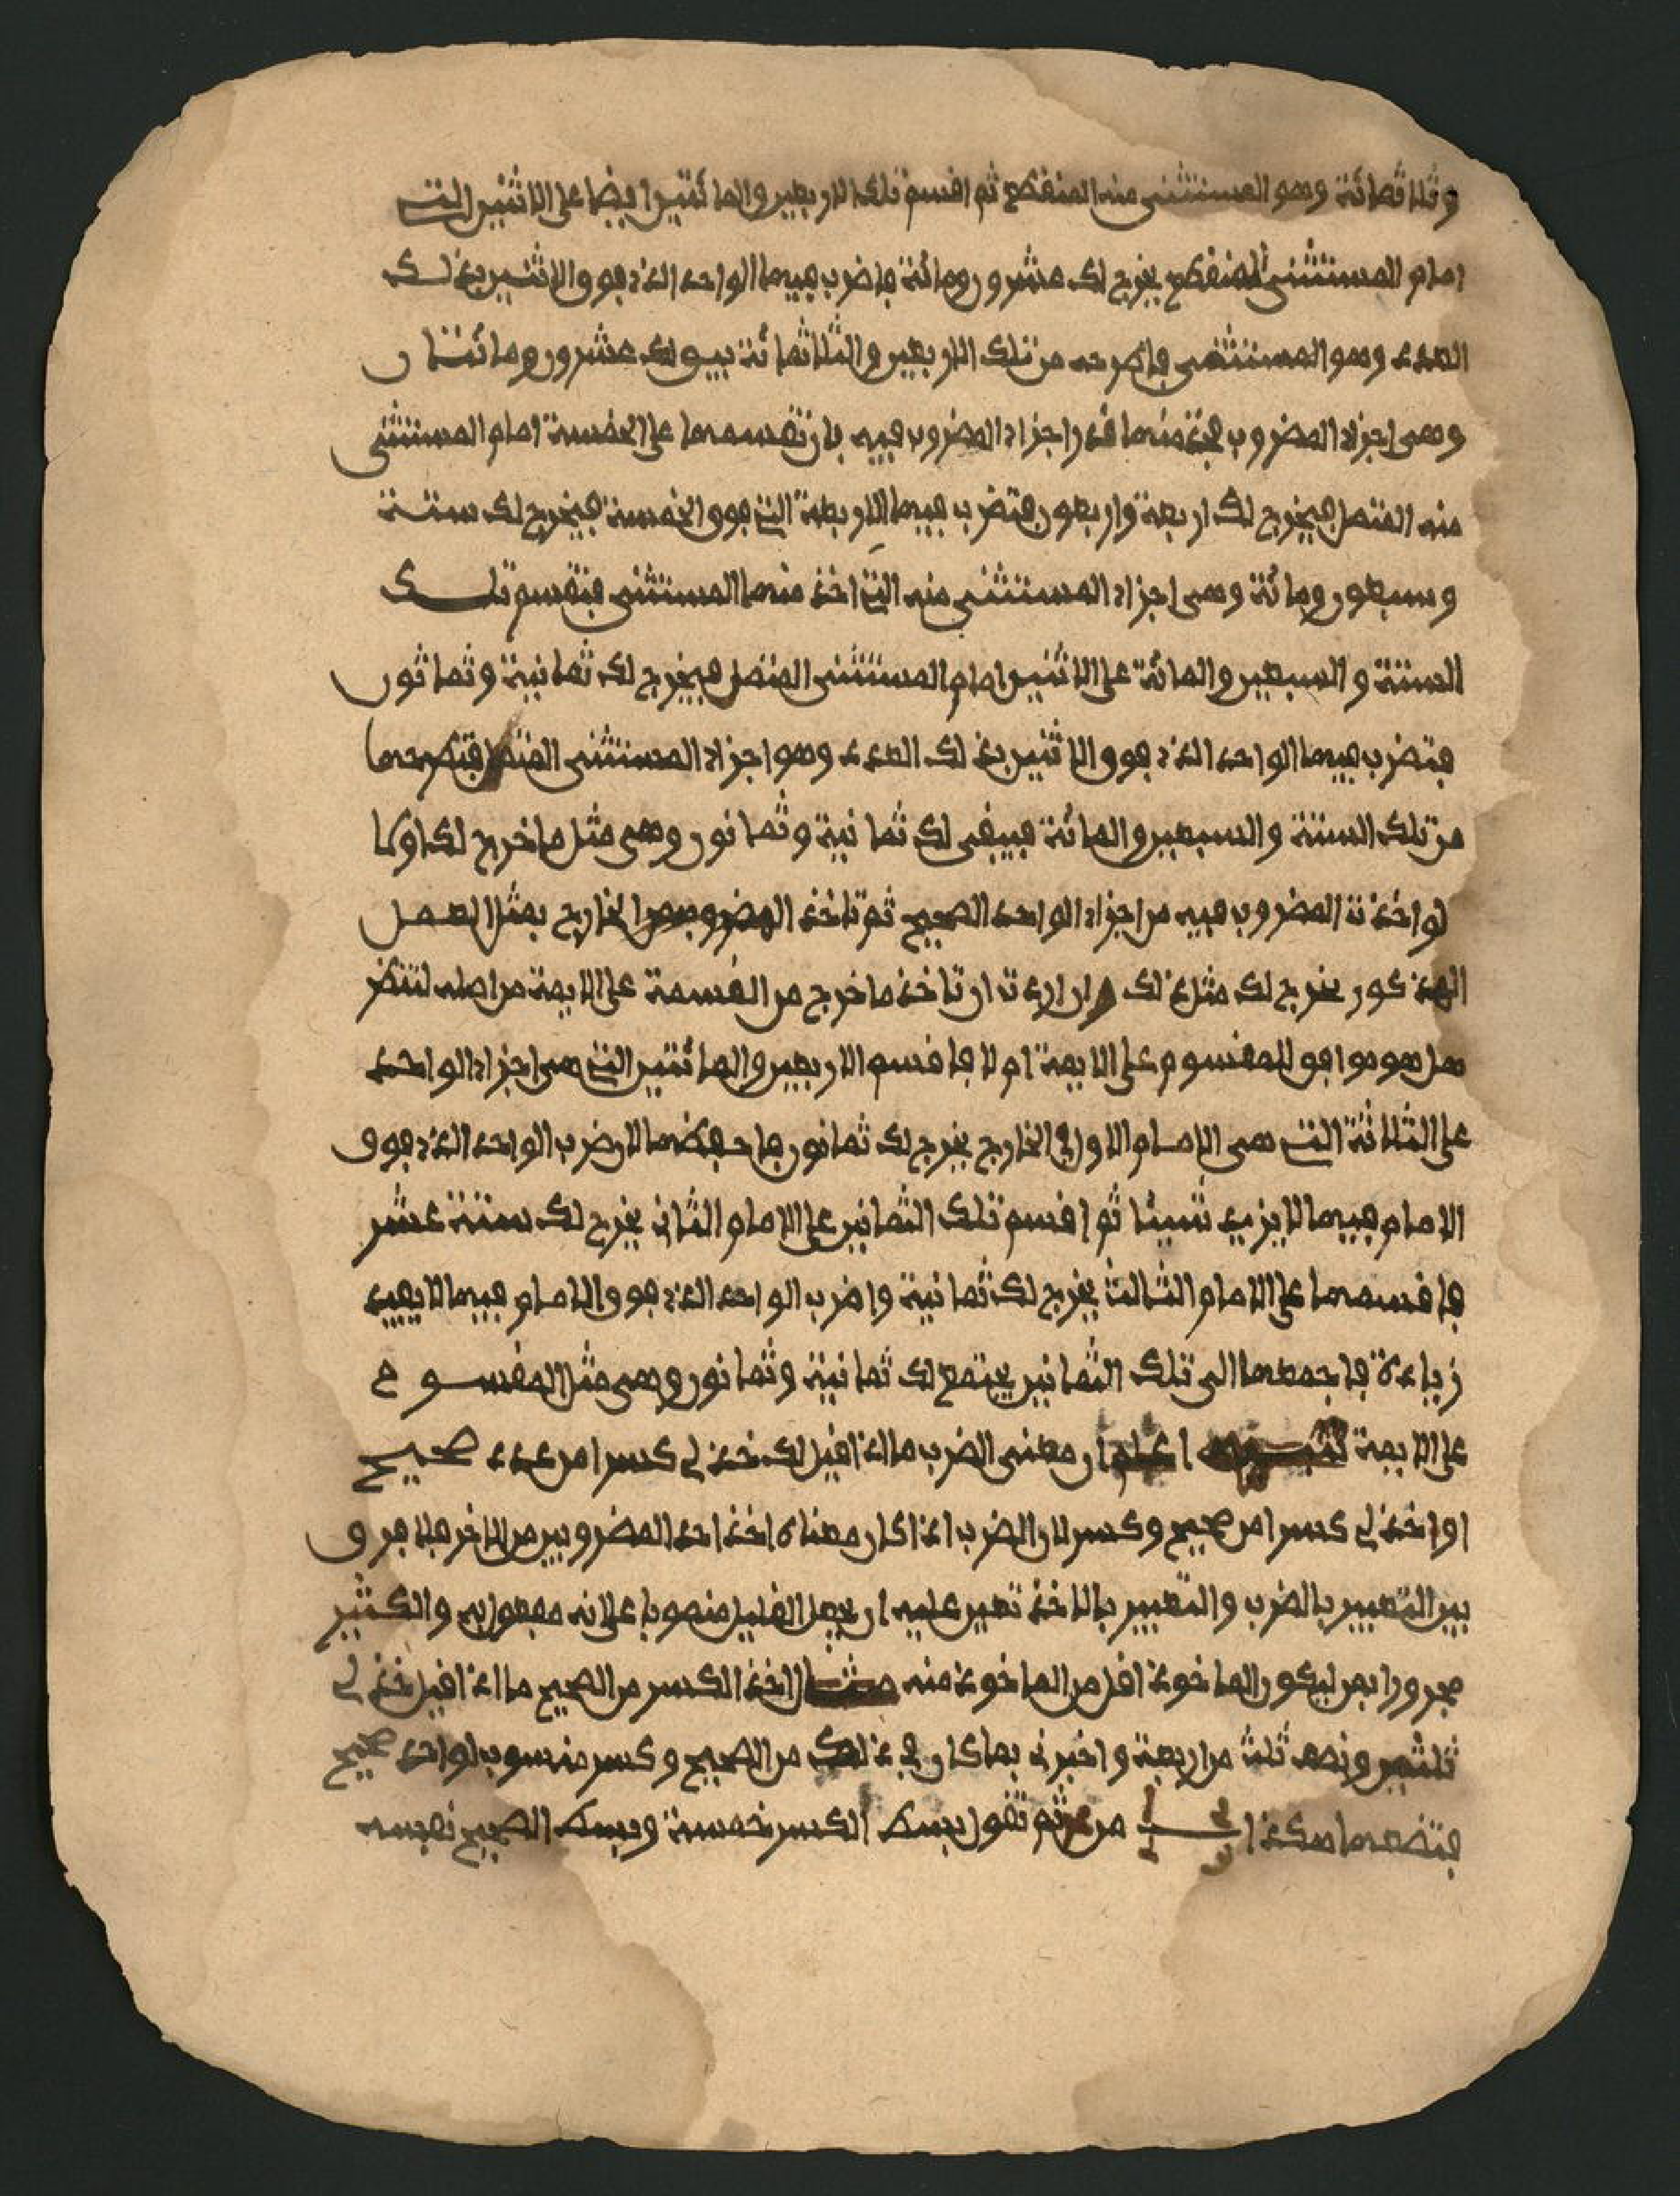 وثلاثمائة وهو المستثنى منه المنقطع ثم اقسم تلك الاربعين والمائتين ايضا على الاثنين التي
امام المستثنى المنقطع يخرج لك عشرون ومائة فاضرب فيها الواحد الذي فوق الاثنين بذلك
العدد وهو المستثنى فاطرحه من تلك الاربعين والثلاثمائة يبقى لك عشرون ومائتان
وهي اجزاء المضروب فخذ منها قدر اجزاء المضروب فيه بان تقسمها على الخمسة امام المستثنى
منه المتصل فيخرج لك اربعة واربعون فتضرب فيها الاربعة التي فوق الخمسة فيخرج لك ستة
وسبعون ومائة وهي اجزاء المستثنى منه التي اخذ منها المستثنى فتقسم تلك
الستة والسبعين والمائة على الاثنين امام المستثنى المتصل فيخرج لك ثمانية وثمانون
فتضرب فيها الواحد الذي فوق الاثنين بذلك العدد وهو اجزاء المستثنى المتصل فتطرحها
من تلك الستة والسبعين والمائة فيبقى لك ثمانية وثمانون وهي مثل ما خرج لك اولا
لو اخذت المضروب فيه من اجزاء الواحد الصحيح ثم تاخذ المضروب من الخارج بمثل العمل
المذكور يخرج لك مثل ذلك وان اردت ان تاخذ ما خرج من القسمة على الايمة من اصله لتنظر
هل هو موافق للمقسوم على الايمة ام لا فاقسم الاربعين والمائتين التي هي اجزاء الواحد
على الثلاثة التي هي الامام الاول في الخارج يخرج لك ثمانون فاحفظها لان ضرب الواحد الذي فوق
الامام فيها لا يزيد شيئا ثم اقسم تلك الثمانين على الامام الثاني يخرج لك ستة عشر
فاقسمها على الامام الثالث يخرج لك ثمانية واضرب الواحد الذي فوق الامام فيها لا يفيد
زيادة فاجمعها الى تلك الثمانين يجتمع لك ثمانية وثمانون وهي مثل المقسوم
على الايمة تنبيه اعلم ان معنى الضرب ما اذا قيل لك خذ لي كسرا من عدد صحيح
او اخذ لي كسرا من صحيح وكسر لان الضرب اذا كان معناه اخذ احد المضروبين من الاخر فلا فرق
بين التعبير بالضرب والتعبير بالاخذ تعين عليه ان يجعل القليل منصوبا على انه مفعول به والكثير
مجرورا بمن ليكون الماخوذ اقل من الماخوذ منه مثال اخذ الكسر من الصحيح ما اذا قيل خذ لي
ثلثين ونصف ثلث من اربعة واخبرني بما كان في ذلك من الصحيح وكسر منسوب لواحد صحيح
فتضعها هكذا من ثم تقول بسط الكسر خمسة وبسط الصحيح نفسه